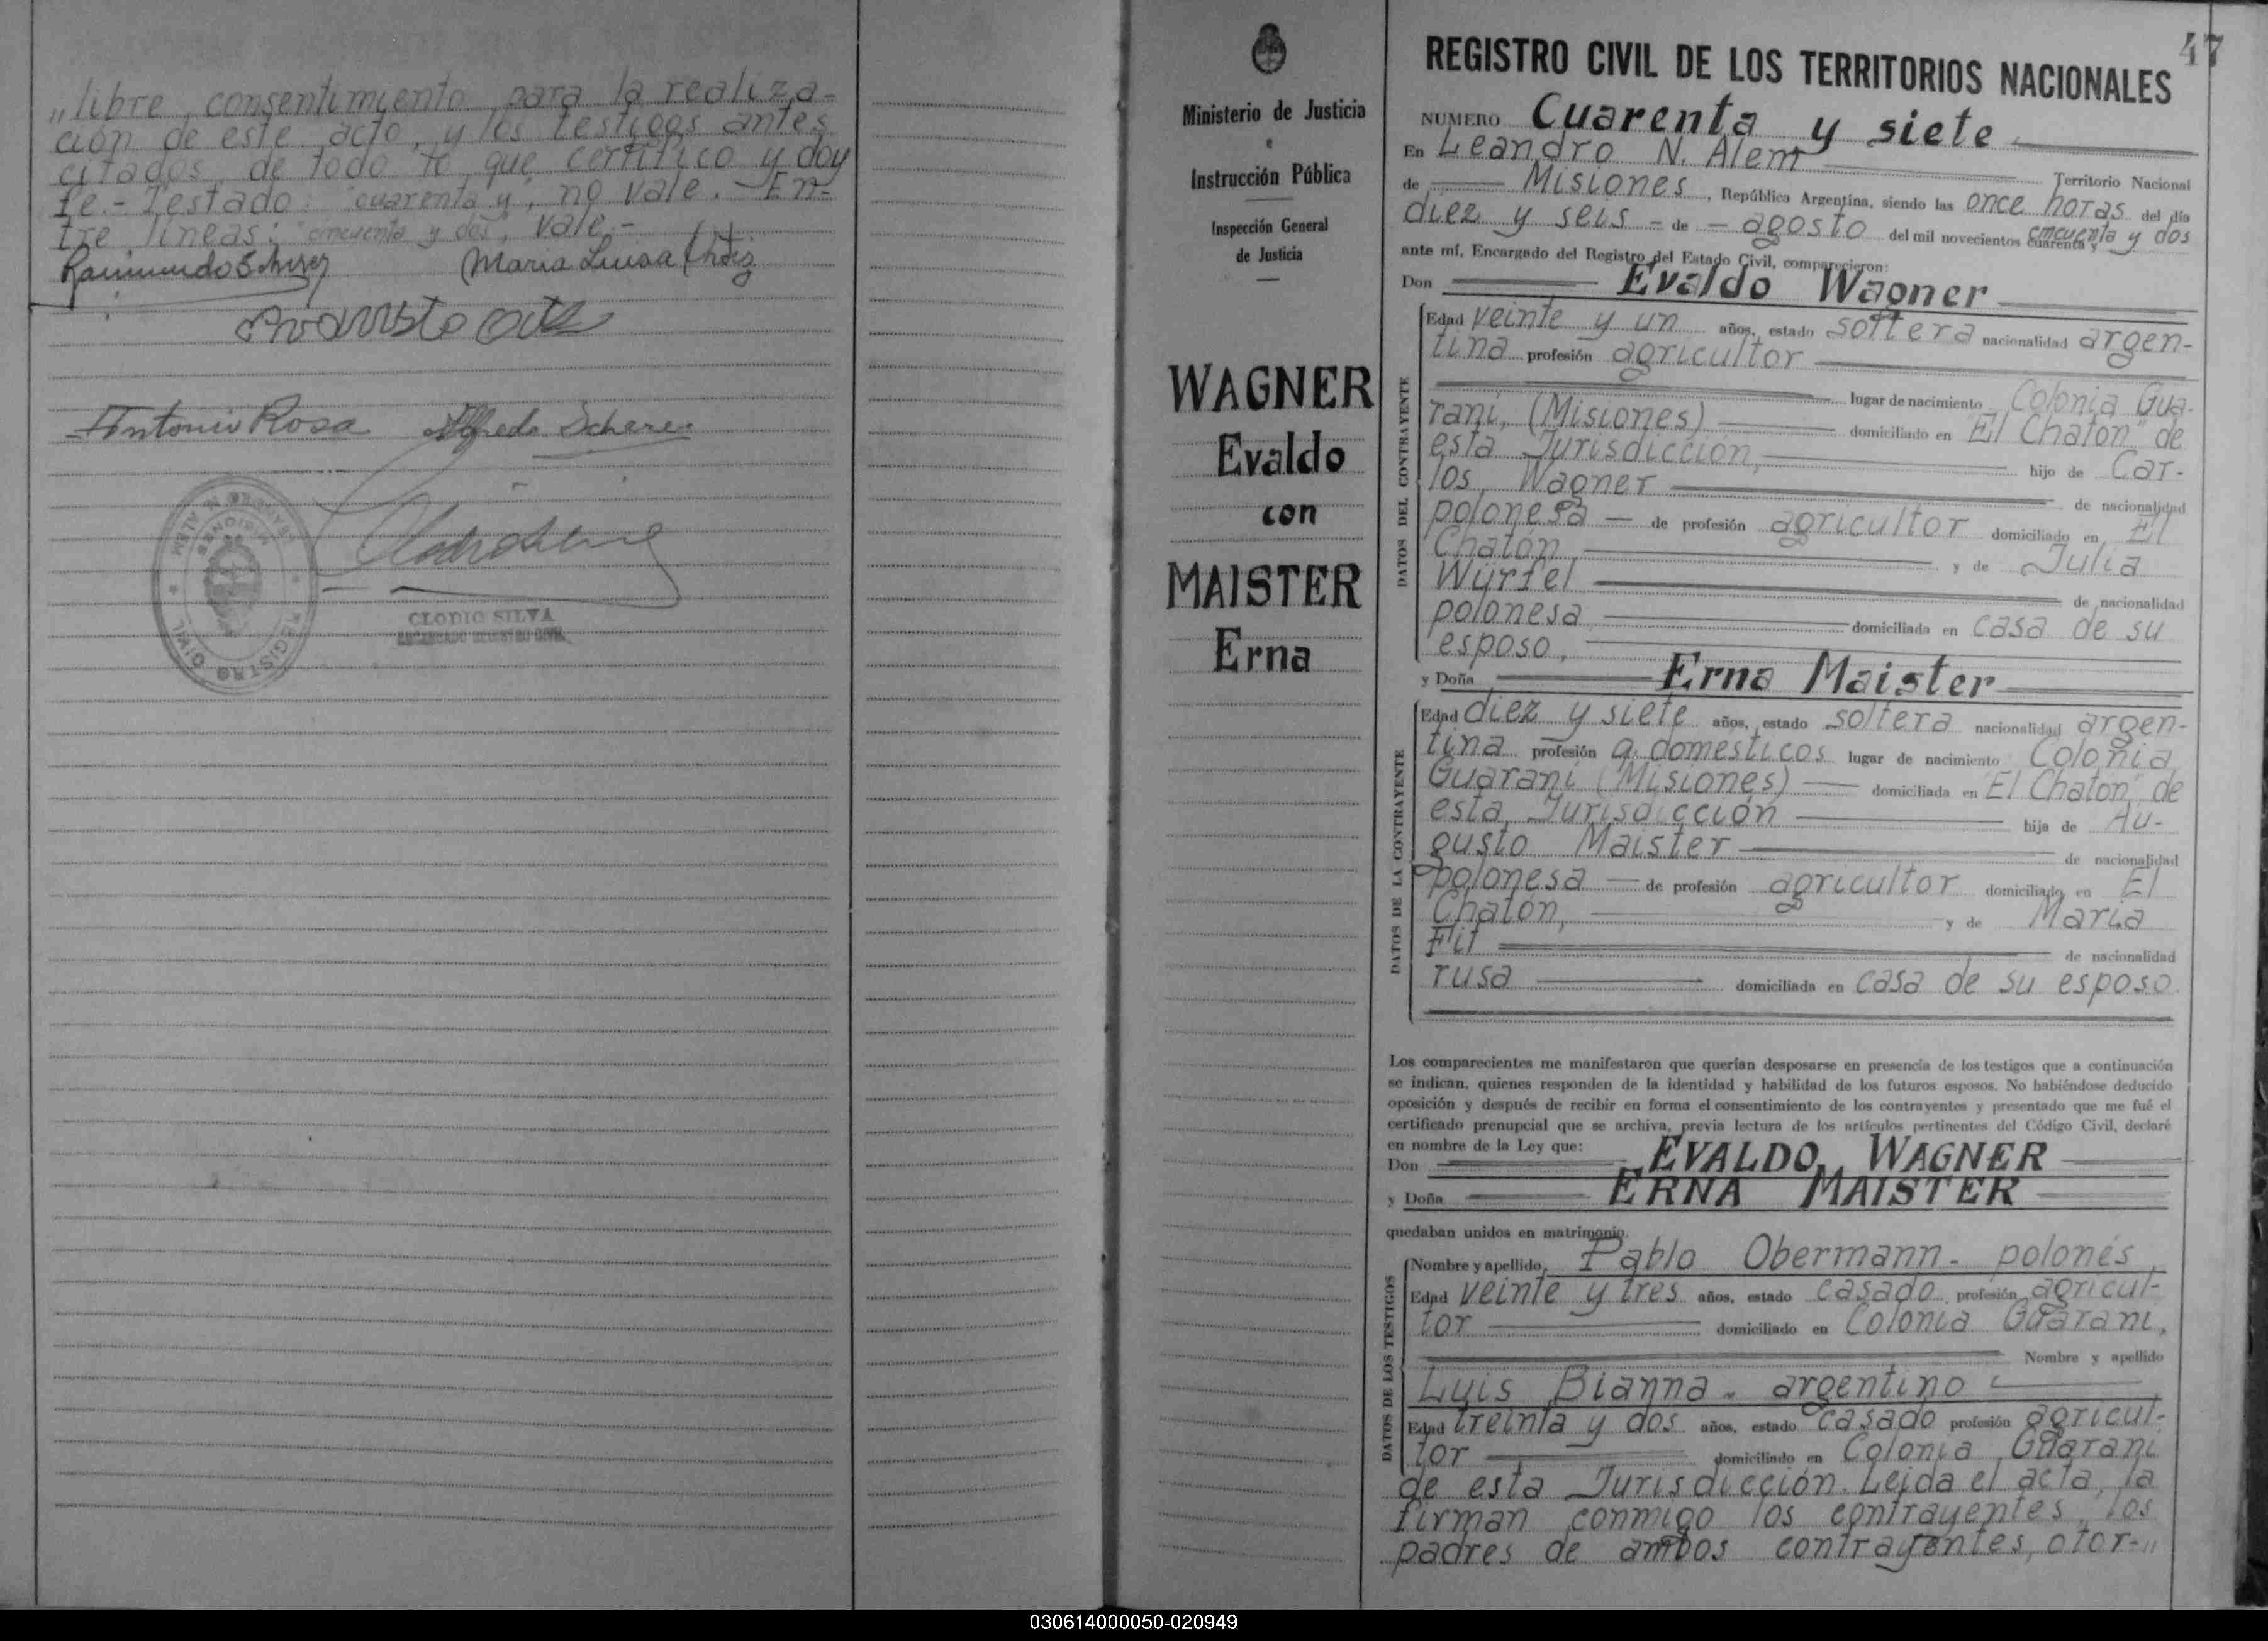 „libre consentimiento para la realiza-
ción de este acto, y los testigos antes
citados, de todo lo que certifico y doy
fe.- Testado: "cuarenta y", no vale.- En-
tre líneas: "cincuenta y dos", vale.-
Raimundo
Maria Luisa
Antonio Rosa Alfredo Scherer
REGISTRO CIVIL
CLODIO SILVA
ENCARGADO REGISTRO CIVIL
Ministerio de Justicia
e
Instrucción Pública
Inspección General
de Justicia
WAGNER
Evaldo
con
MAISTER
Erna
47
REGISTRO CIVIL DE LOS TERRITORIOS NACIONALES
NUMERO Cuarenta y siete
En Leandro N. Alem Territorio Nacional
de Misiones, República Argentina, siendo las once horas del día
diez y seis - de - agosto del mil novecientos cuarenta y cincuenta y dos
ante mí, Encargado del Registro del Estado Civil, comparecieron:
Don Evaldo Wagner
DATOS DEL CONTRAYENTE
Edad veinte y un años, estado soltera nacionalidad argen-
tina profesión agricultor
lugar de nacimiento Colonia Gua-
raní, (Misiones) domiciliado en "El Chatón" de
esta Jurisdicción, hijo de Car-
los Wagner de nacionalidad
polonesa - de profesión agricultor domiciliado en El
Chatón, y de Julia
Würfel de nacionalidad
polonesa domiciliada en casa de su
esposo,
y Doña Erna Maister
DATOS DE LA CONTRAYENTE
Edad diez y siete años, estado soltera nacionalidad argen-
tina profesión q. domesticos lugar de nacimiento Colonia
Guaraní (Misiones) domiciliada en "El Chatón" de
esta Jurisdicción hija de Au-
gusto Maister de nacionalidad
polonesa - de profesión agricultor domiciliado en El
Chatón, y de Maria
Fit de nacionalidad
rusa domiciliada en casa de su esposo.
Los comparecientes me manifestaron que querían desposarse en presencia de los testigos que a continuación
se indican, quienes responden de la identidad y habilidad de los futuros esposos. No habiéndose deducido
oposición y después de recibir en forma el consentimiento de los contrayentes y presentado que me fué el
certificado prenupcial que se archiva, previa lectura de los artículos pertinentes del Código Civil, declaré
en nombre de la Ley que:
Don EVALDO WAGNER
y Doña ERNA MAISTER
quedaban unidos en matrimonio.
DATOS DE LOS TESTIGOS
Nombre y apellido, Pablo Obermann - polonés
Edad veinte y tres años, estado casado profesión agricul-
tor domiciliado en Colonia Guaraní,
Nombre y apellido
Luis Bianna - argentino
Edad treinta y dos años, estado casado profesión agricul-
tor domiciliado en Colonia Guaraní
de esta Jurisdicción. Leida el acta, la
firman conmigo los contrayentes, los
padres de ambos contrayentes, otor-„
030614000050-020949